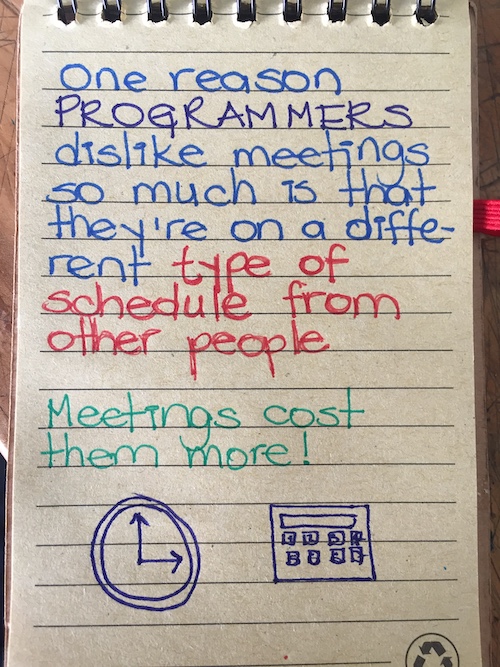 one reason
PROGRAMMERS
dislike meetings
so much is that
they're on a diffe-
rent type of
schedule from
other people
Meetings cost
them more!